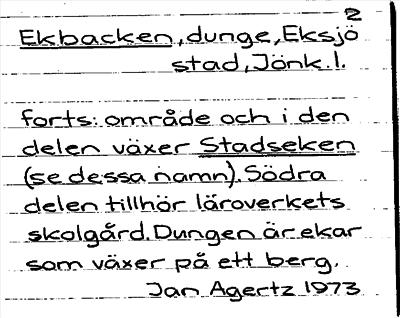 2
Ekbacken, dunge, Eksjö
stad, Jönk. l.
forts: område och i den
delen växer Stadseken
(se dessa namn). Södra
delen tillhör läroverkets
skolgård. Dungen är ekar
som växer på ett berg.
Jan Agertz 1973